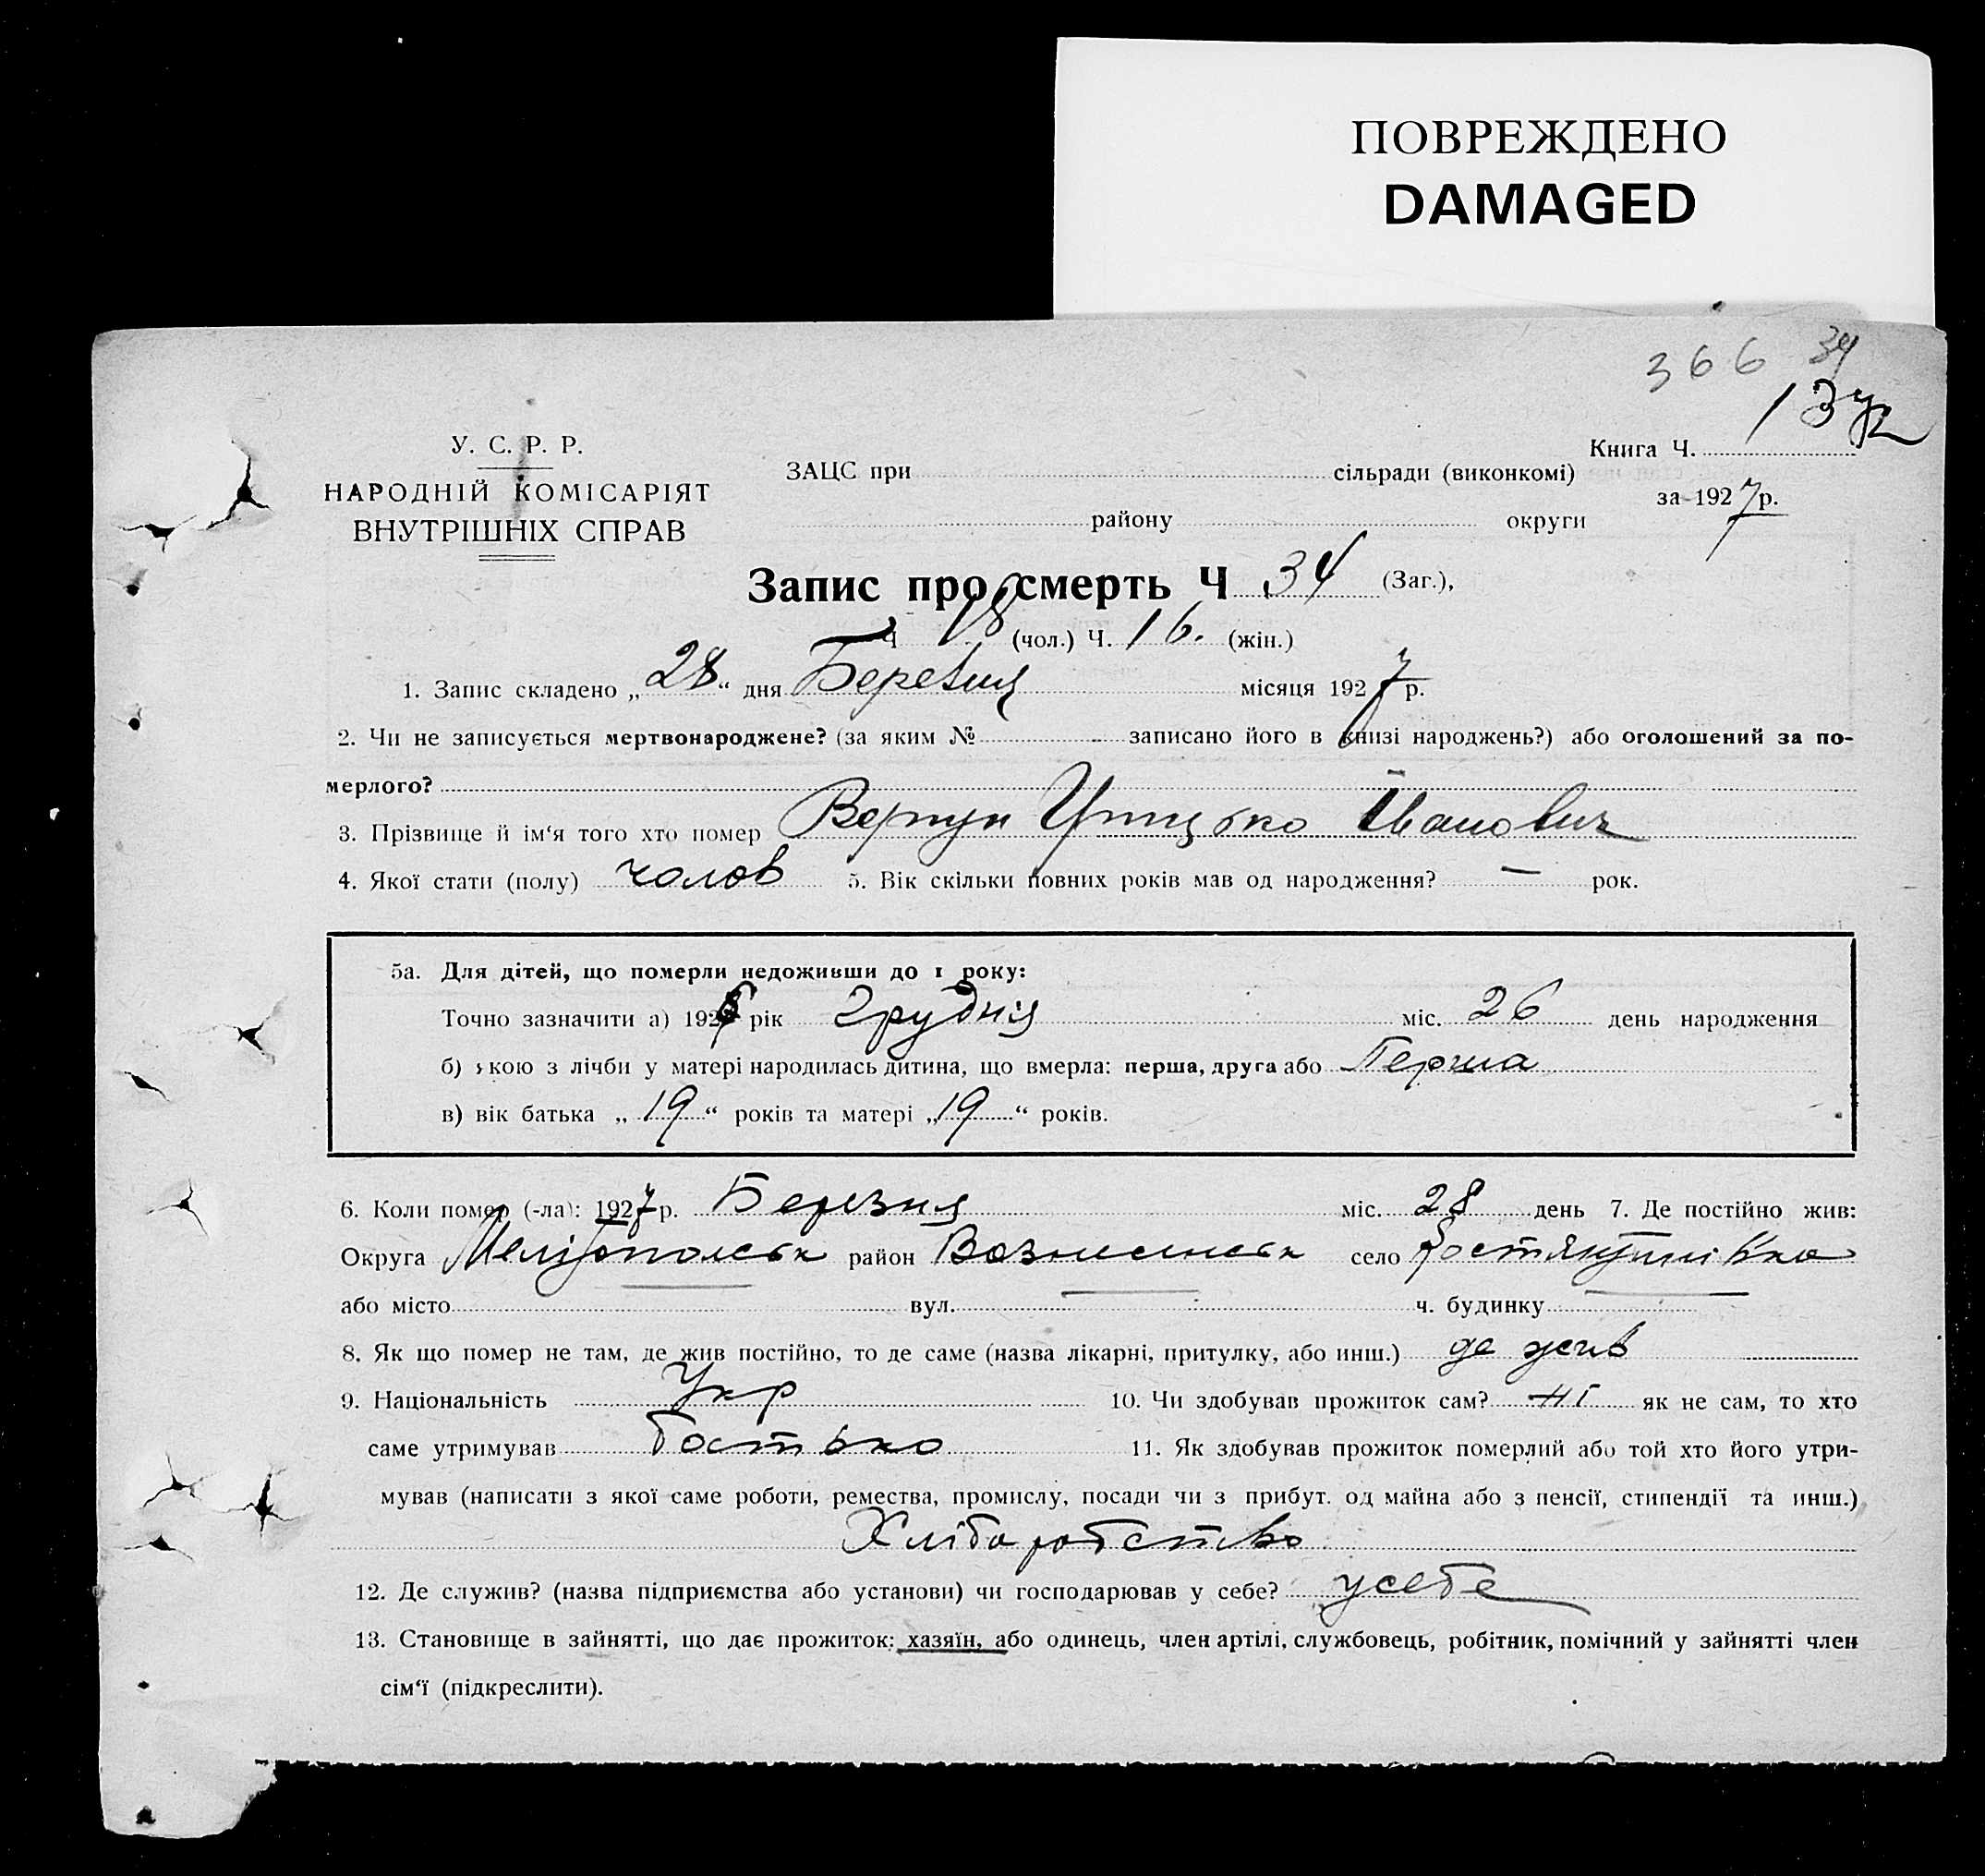 ПОВРЕЖДЕНО
DAMAGED
366 34
У. С. Р. Р.
НАРОДНІЙ КОМІСАРІЯТ
ВНУТРІШНІХ СПРАВ
Книга Ч.
ЗАЦС при сільради (виконкомі)
за 1927 р.
району округи
Запис про смерть Ч 34 (Заг.),
Ч 18 (чол.) Ч. 16. (жін.)
1. Запис складено „28“ дня Березня місяця 1927 р.
2. Чи не записується мертвонароджене? (за яким № записано його в книзі народжень?) або оголошений за по-
мерлого?
3. Прізвище й ім‘я того хто помер Вертун Грицько Іванович
4. Якої стати (полу) чолов 5. Вік скільки повних років мав од народження? — рок.
5а. Для дітей, що померли недоживши до 1 року:
Точно зазначити а) 1926 рік Грудня міс. 26 день народження
б) якою з лічби у матері народилась дитина, що вмерла: перша, друга або Перша
в) вік батька „19“ років та матері „19“ років.
6. Коли помер (-ла): 1927 р. Березня міс. 28 день 7. Де постійно жив:
Округа Мелітопольськ район Вознесенськ село
або місто вул. ч. будинку
8. Як що помер не там, де жив постійно, то де саме (назва лікарні, притулку, або инш.) де жив
9. Національність Укр 10. Чи здобував прожиток сам? ні як не сам, то хто
саме утримував батько 11. Як здобував прожиток померлий або той хто його утри-
мував (написати з якої саме роботи, ремества, промислу, посади чи з прибут. од майна або з пенсії, стипендії та инш.)
Хліборобство
12. Де служив? (назва підприємства або установи) чи господарював у себе? у себе
13. Становище в зайнятті, що дає прожиток: хазяїн, або одинець, член артілі, службовець, робітник, помічний у зайнятті член
сім‘ї (підкреслити).